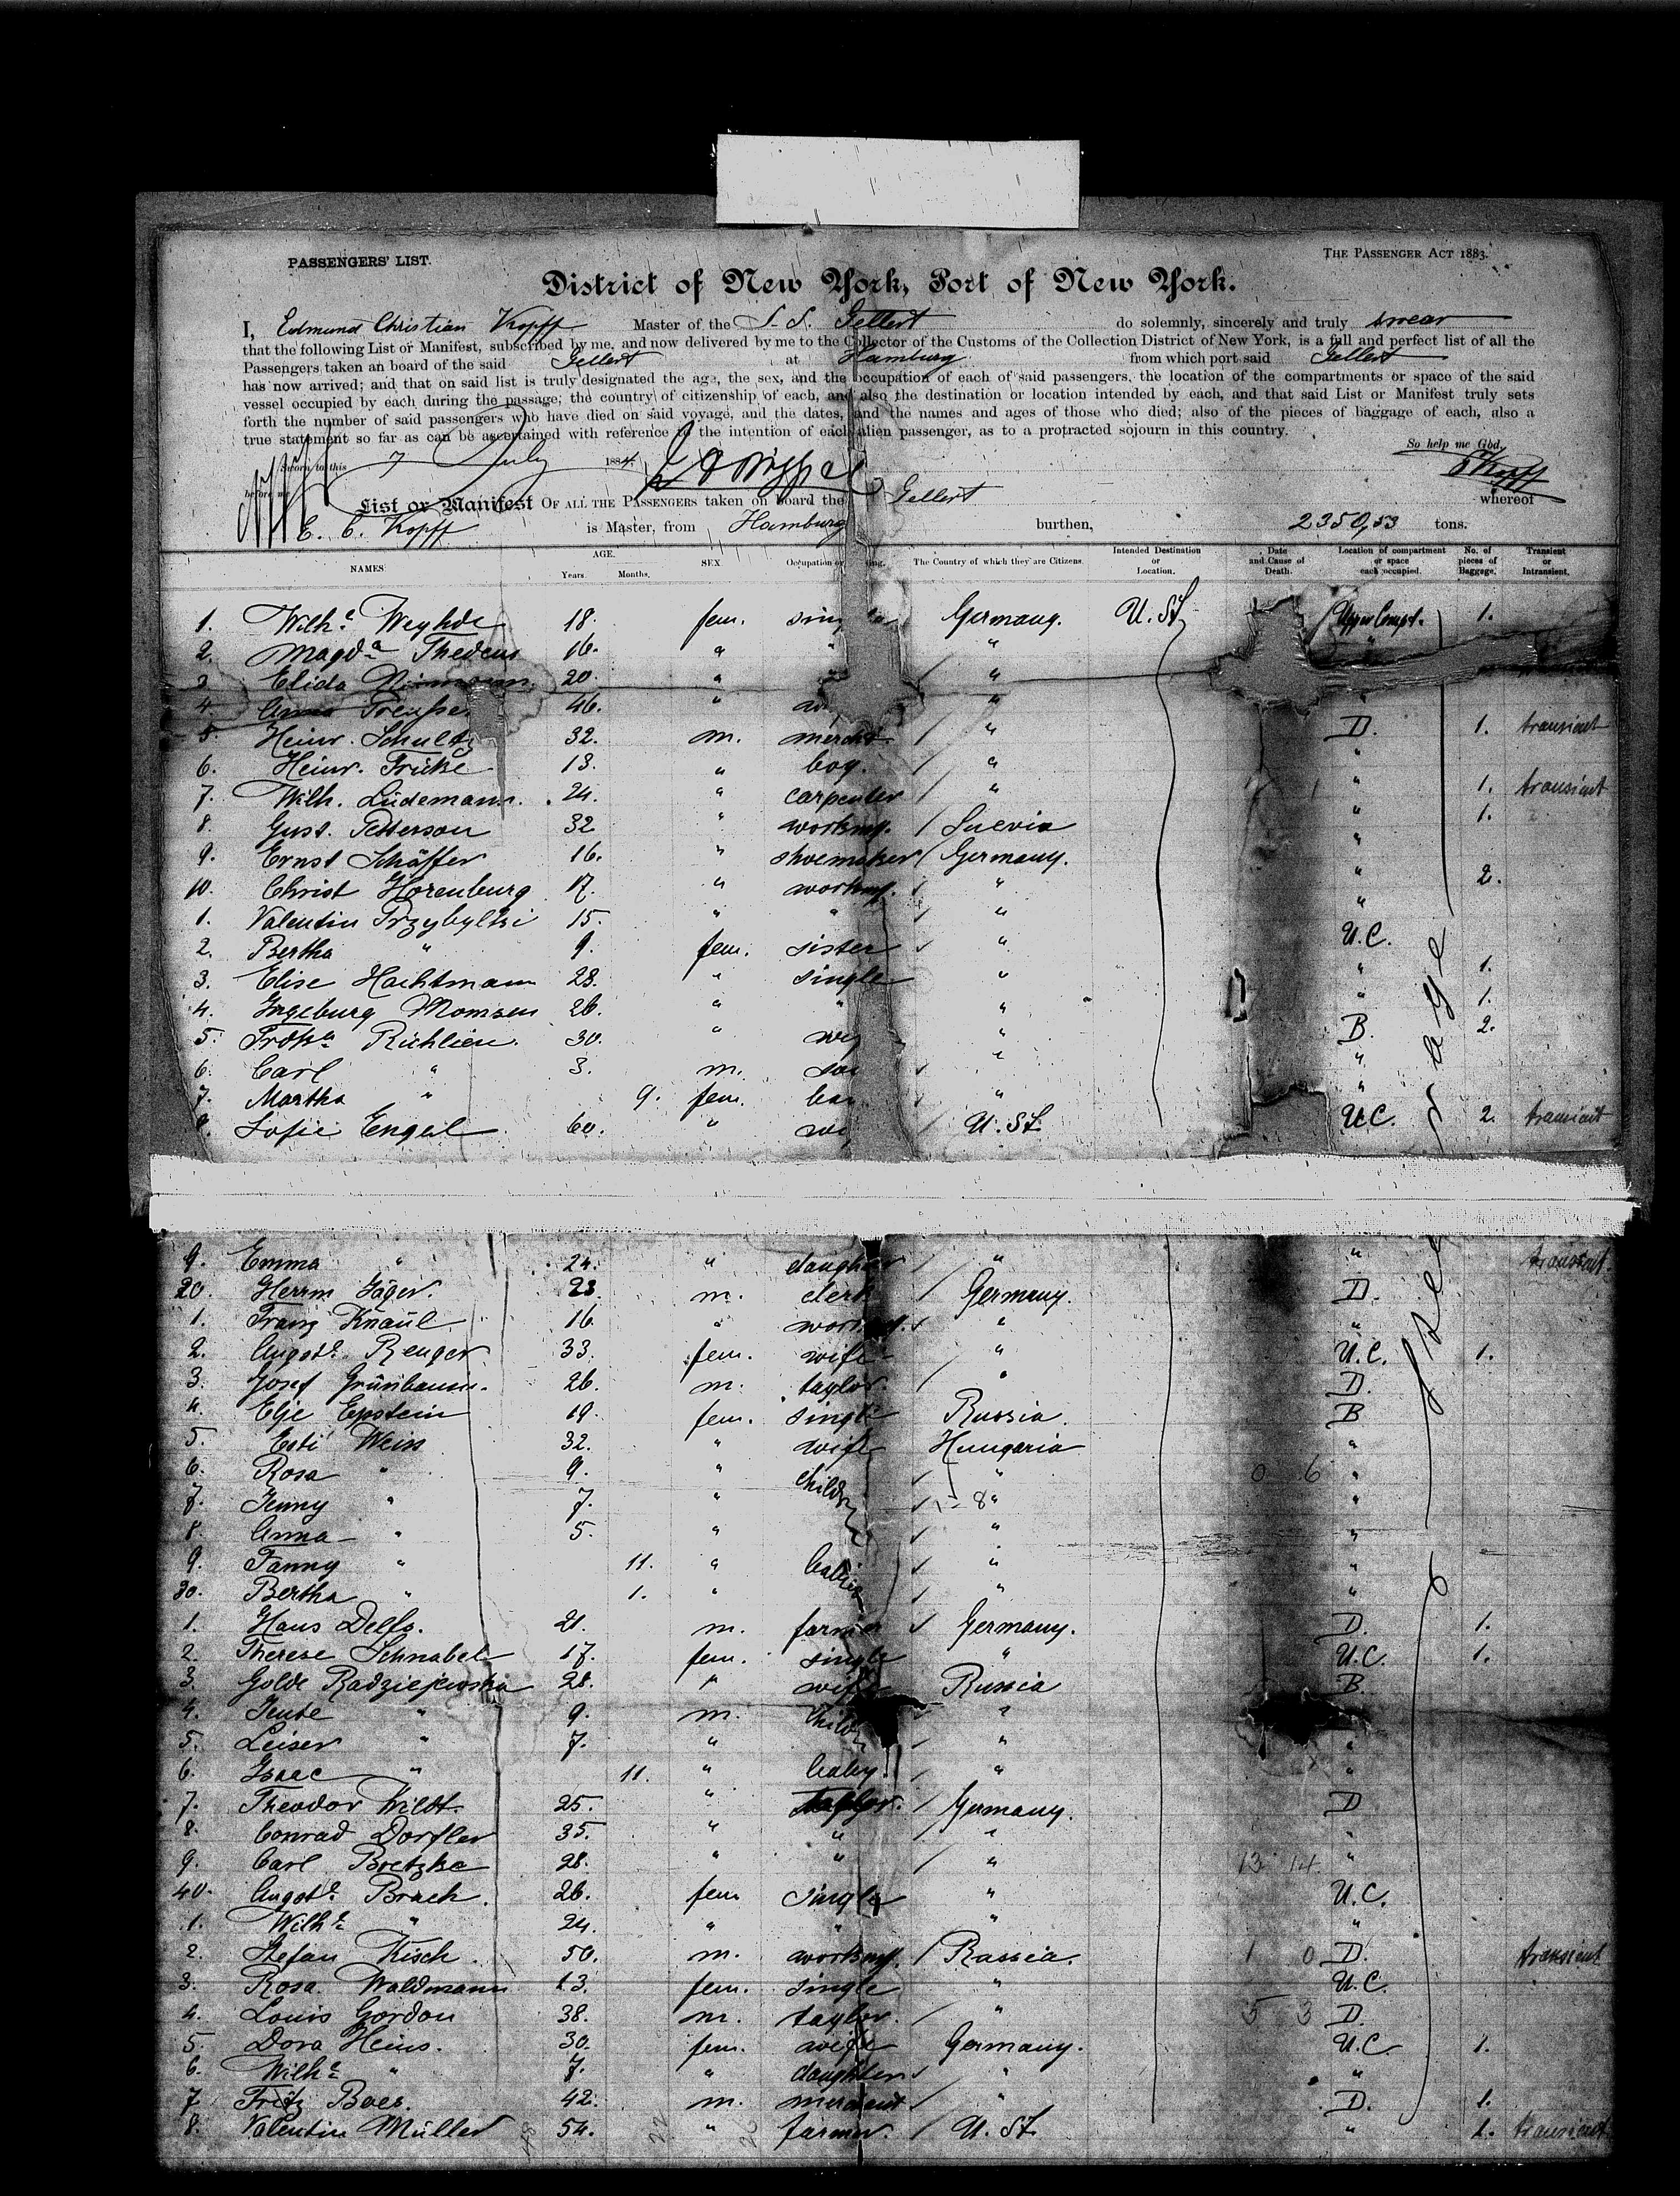 PASSENGERS' LIST.
THE PASSENGER ACT 1883.
District of New York, Port of New York.
I, Edmund Christian Kopff Master of the S. S. Gellert do solemnly, sincerely and truly swear
that the following List or Manifest, subscribed by me, and now delivered by me to the Collector of the Customs of the Collection District of New York, is a full and perfect list of all the
Passengers taken an board of the said Gellert at Hamburg from which port said Gellert
has now arrived; and that on said list is truly designated the age, the sex, and the occupation of each of said passengers, the location of the compartments or space of the said
vessel occupied by each during the passage; the country of citizenship of each, and also the destination or location intended by each, and that said List or Manifest truly sets
forth the number of said passengers who have died on said voyage, and the dates, and the names and ages of those who died; also of the pieces of baggage of each, also a
true statement so far as can be ascertained with reference to the intention of each alien passenger, as to a protracted sojourn in this country.
So help me God.
Sworn to this 7 July 1884. EKopff
before me
List or Manifest OF ALL THE PASSENGERS taken on board the Gellert whereof
E. C. Kopff is Master, from Hamburg burthen, 2350,53 tons.
NAMES AGE. Years. Months. SEX Occupation or The Country of which they are Citizens. Intended Destination or Location. Date and Cause of Death. Location of compartment or space each occupied. No. of pieces of Baggage. Transient or Intransient.
1. Wilhe Weyhde 18. fem. Germany. U. St. Upper Compt. 1.
2. Magda Thedens 16. " " "
3. Elida 20. " "
4. Anna Preusse 46. " "
5. Heinr. Schultz 32. m. mercht. " D. 1. transient
6. Heinr. Fricke 13. " boy. " "
7. Wilh. Lüdemann. 24. " carpenter " " 1. transient
8. Gust. Petterson 32 " workmg. Suevia " 1.
9. Ernst Schäffer 16. " shoemaker Germany. "
10. Christ Horenburg 17. " workmg. " " 2.
1. Valentin Przybylski 15. " " " "
2. Bertha " 9. fem. sister " U.C.
3. Elise Hachtmann 28. " single " " 1.
4. Ingeburg Momsen 26. " " " " 1.
5. Fredka Richlien. 30. " " B. 2.
6. Carl " 3. m. " "
7. Martha " 9. fem. " "
8. Sofie Engel 60. " U. St. U.C. 2. transient
9. Emma " 24. " daughter " " transient.
20. Herrm. Jäger. 23 m. clerk Germany. D.
1. Franz Knaül 16. " workmg. " "
2. Augste Renger 33. fem. wife " U.C. 1.
3. Josef Grünbaum. 26. m. taylor. " D.
4. Elje Epstein 19. fem. single Russia. B
5. Esti Weiss 32. " wife Hungaria "
6. Rosa " 9. " childr " 0 6 "
7. Jenny " 7. " " "
8. Anna " 5. " " "
9. Fanny " 11. " babies " "
30. Bertha " 1. " " "
1. Hans Delfs. 21. m. farmer Germany. D. 1.
2. Therese Schnabel 17. fem. single " U.C. 1.
3. Golde Radziejewska 28. " wife Russia B.
4. Jente " 9. m. childr "
5. Leiser " 7. " " "
6. Isaac " 11. " baby. " "
7. Theodor Wildt. 25. " taylor. Germany. D
8. Conrad Dorfler 35. " " " "
9. Carl Bretzke 28. " " " 13 14 "
40. Augste Brach. 26. fem single " U.C.
1. Wilhe " 24. " " " "
2. Stefan Kisch. 50. m. workmg. Russia. 1 0 D. transient
3. Rosa. Waldmann 13. fem. single " U.C.
4. Louis Gordon 38. m. taylor. " 5 3 D.
5. Dora Heins. 30. fem. wife Germany. U.C. 1.
6. Wilhe " 7. " daughter " "
7 Fritz Boes. 42. m. merchant " D. 1.
8. Valentin Müller 54. " farmer. U. St. " 1. transient
Steerage